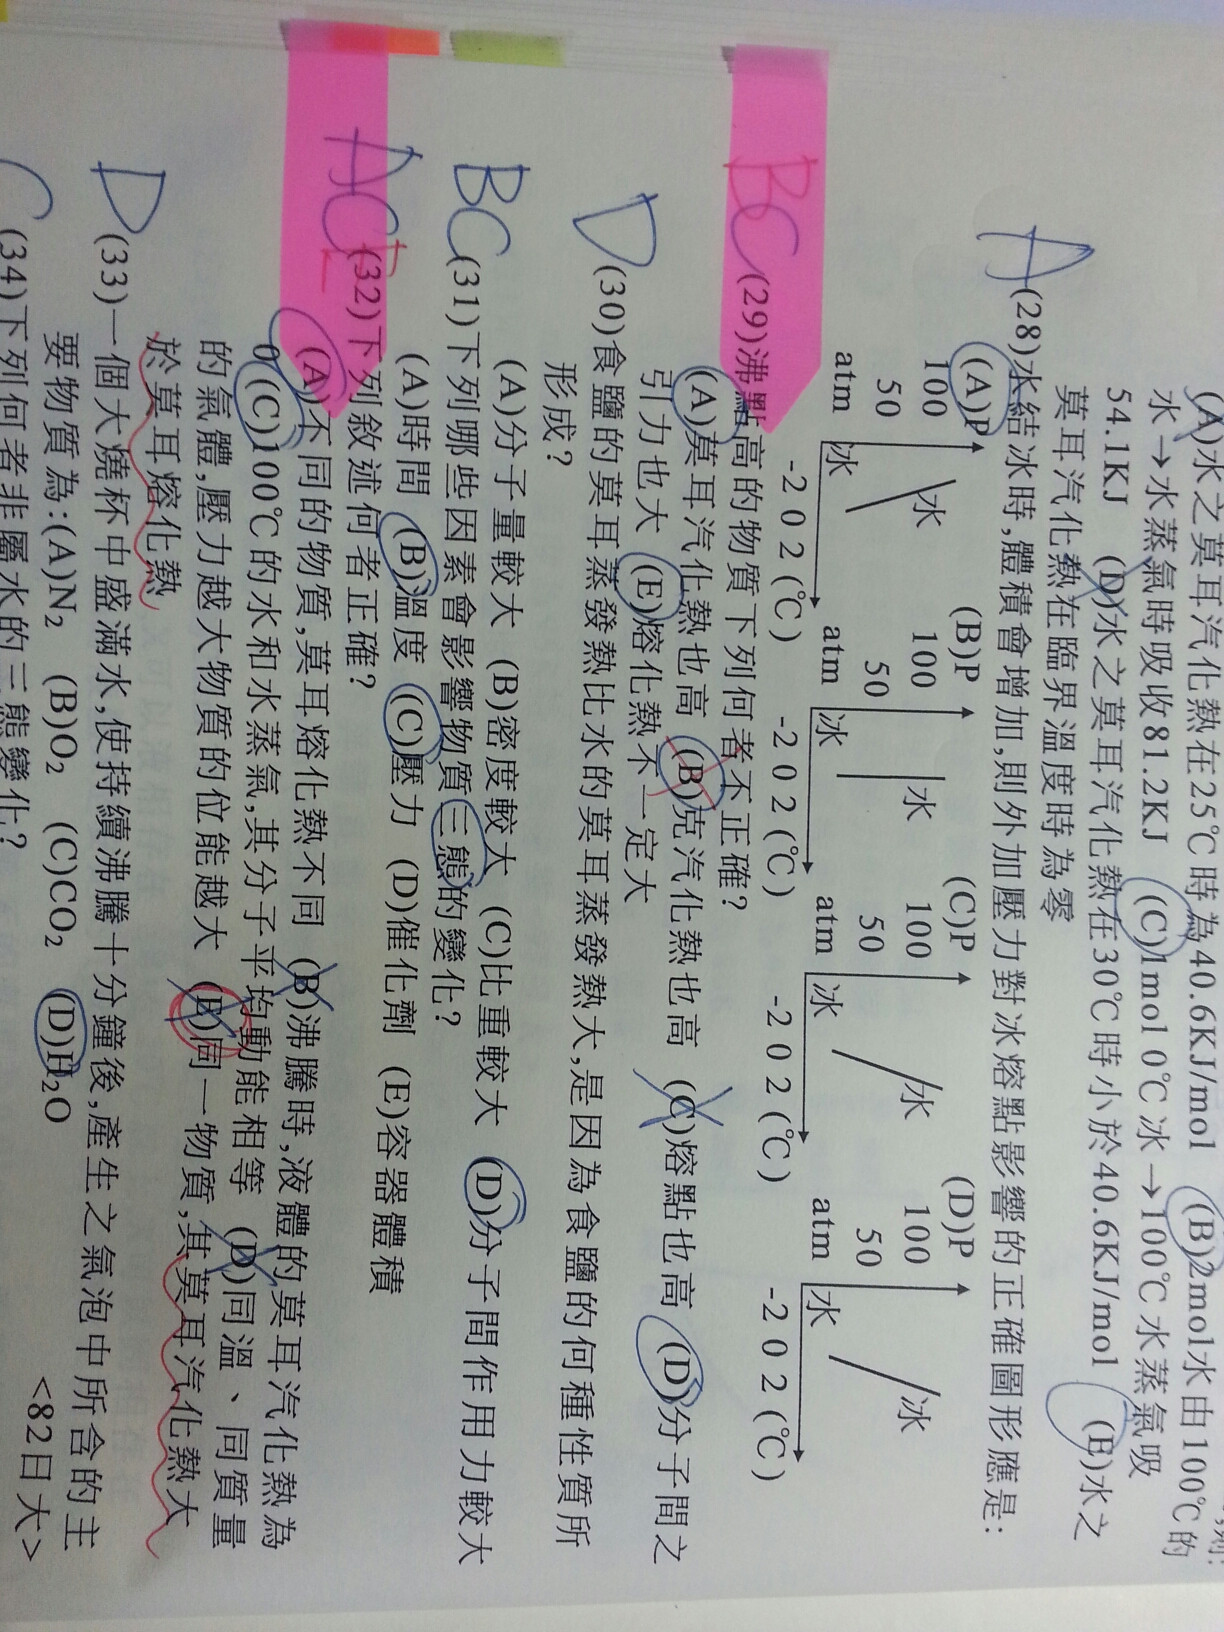 (A)水之莫耳汽化熱在25℃時為40.6KJ/mol (B)2mol水由100℃的
水→水蒸氣時吸收81.2KJ (C)1mol 0℃冰→100℃水蒸氣吸
54.1KJ (D)水之莫耳汽化熱在30℃時小於40.6KJ/mol (E)水之
莫耳汽化熱在臨界溫度時為零
A (28)水結冰時,體積會增加,則外加壓力對冰熔點影響的正確圖形應是:
(A)P (B)P (C)P (D)P
100 水 100 水 100 水 100 冰
50 50 50 50
冰 冰 冰 水
atm atm atm atm
-2 0 2 (℃) -2 0 2 (℃) -2 0 2 (℃) -2 0 2 (℃)
BC (29)沸點高的物質下列何者不正確?
(A)莫耳汽化熱也高 (B)克汽化熱也高 (C)熔點也高 (D)分子間之
引力也大 (E)熔化熱不一定大
D (30)食鹽的莫耳蒸發熱比水的莫耳蒸發熱大,是因為食鹽的何種性質所
形成?
(A)分子量較大 (B)密度較大 (C)比重較大 (D)分子間作用力較大
BC (31)下列哪些因素會影響物質三態的變化?
(A)時間 (B)溫度 (C)壓力 (D)催化劑 (E)容器體積
ACE (32)下列敘述何者正確?
(A)不同的物質,莫耳熔化熱不同 (B)沸騰時,液體的莫耳汽化熱為
0 (C)100℃的水和水蒸氣,其分子平均動能相等 (D)同溫、同質量
的氣體,壓力越大物質的位能越大 (E)同一物質,其莫耳汽化熱大
於莫耳熔化熱
D (33)一個大燒杯中盛滿水,使持續沸騰十分鐘後,產生之氣泡中所含的主
要物質為:(A)N₂ (B)O₂ (C)CO₂ (D)H₂O <82日大>
C (34)下列何者非屬水的三態變化?